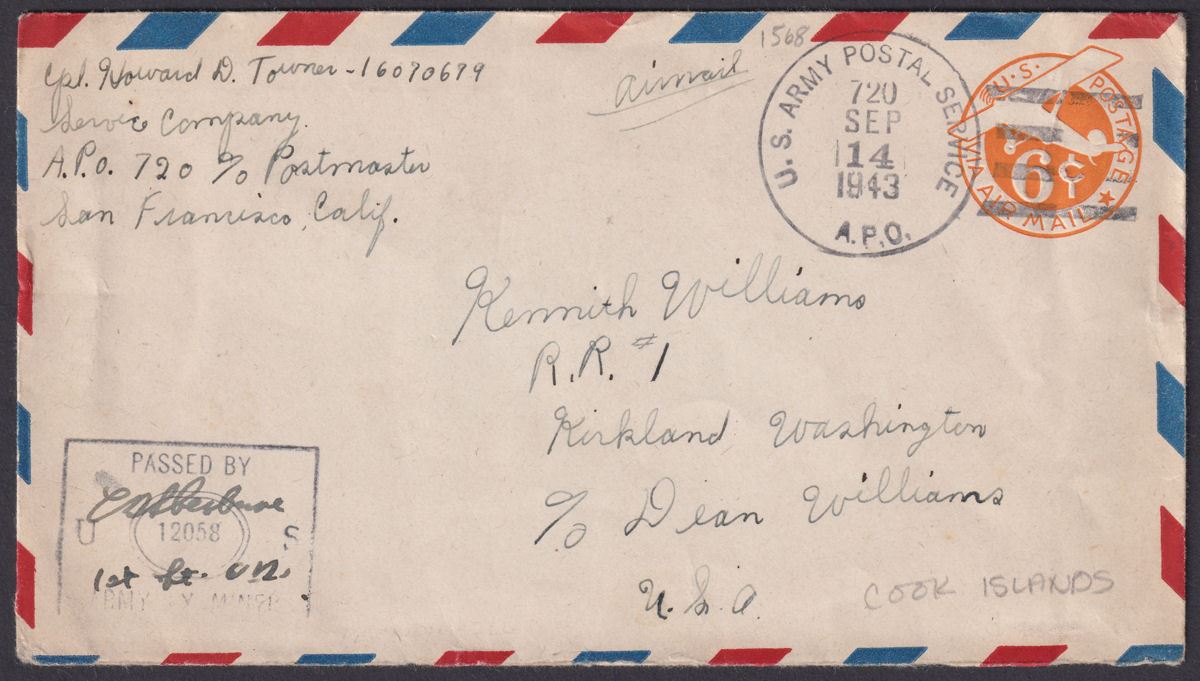 Cpl. Howard D. Towner - 16070679
Service Company
A.P.O. 720 c/o Postmaster
San Francisco, Calif.
1568
airmail
U. S. ARMY POSTAL SERVICE
720
SEP
14
1943
A.P.O.
U.S. POSTAGE
6¢
VIA AIR MAIL
Kennith Williams
R.R. #1
Kirkland, Washington
c/o Dean Williams
U.S.A.
COOK ISLANDS
PASSED BY
U 12058 S
1st Lt.
ARMY EXAMINER